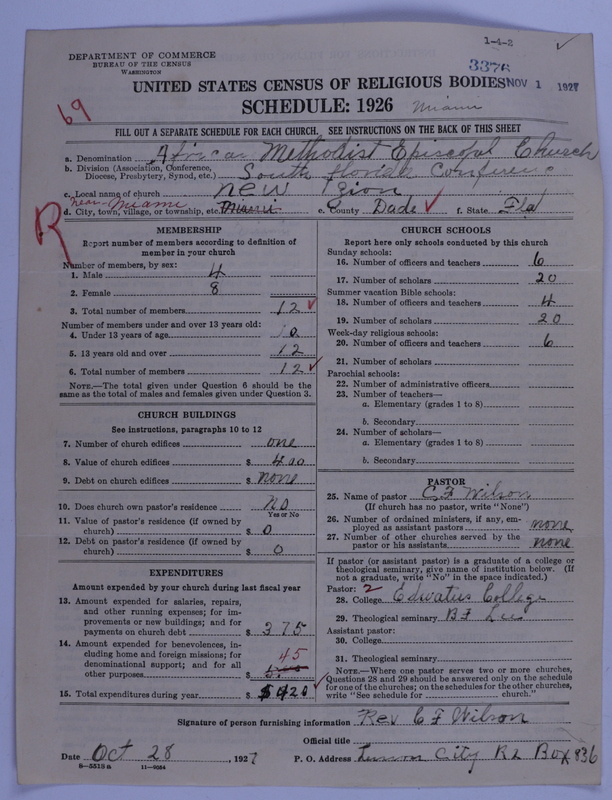 1-4-2
DEPARTMENT OF COMMERCE
BUREAU OF THE CENSUS
WASHINGTON
3376
NOV 1 1927
UNITED STATES CENSUS OF RELIGIOUS BODIES
69
SCHEDULE: 1926 Miami
FILL OUT A SEPARATE SCHEDULE FOR EACH CHURCH. SEE INSTRUCTIONS ON THE BACK OF THIS SHEET
a. Denomination African Methodist Episcopal Church
b. Division (Association, Conference, Diocese, Presbytery, Synod, etc.) South Florida Conference
c. Local name of church new Zion
near Miami
R
d. City, town, village, or township, etc. Miami e. County Dade f. State Fla
MEMBERSHIP
Report number of members according to definition of member in your church
Number of members, by sex:
1. Male 4
2. Female 8
3. Total number of members 12
Number of members under and over 13 years old:
4. Under 13 years of age 0
5. 13 years old and over 12
6. Total number of members 12
NOTE.—The total given under Question 6 should be the same as the total of males and females given under Question 3.
CHURCH BUILDINGS
See instructions, paragraphs 10 to 12
7. Number of church edifices one
8. Value of church edifices $ 400
9. Debt on church edifices $ none
10. Does church own pastor's residence? no
Yes or No
11. Value of pastor's residence (if owned by church) $ 0
12. Debt on pastor's residence (if owned by church) $ 0
EXPENDITURES
Amount expended by your church during last fiscal year
13. Amount expended for salaries, repairs, and other running expenses; for improvements or new buildings; and for payments on church debt $ 375
14. Amount expended for benevolences, including home and foreign missions; for denominational support; and for all other purposes $ 45
15. Total expenditures during year $ 420
CHURCH SCHOOLS
Report here only schools conducted by this church
Sunday schools:
16. Number of officers and teachers 6
17. Number of scholars 20
Summer vacation Bible schools:
18. Number of officers and teachers 4
19. Number of scholars 20
Week-day religious schools:
20. Number of officers and teachers 6
21. Number of scholars
Parochial schools:
22. Number of administrative officers
23. Number of teachers—
a. Elementary (grades 1 to 8)
b. Secondary
24. Number of scholars—
a. Elementary (grades 1 to 8)
b. Secondary
PASTOR
25. Name of pastor C F Wilson
(If church has no pastor, write "None")
26. Number of ordained ministers, if any, employed as assistant pastors none
27. Number of other churches served by the pastor or his assistants none
If pastor (or assistant pastor) is a graduate of a college or theological seminary, give name of institution below. (If not a graduate, write "No" in the space indicated.)
Pastor: 2
28. College Edwatus College
29. Theological seminary B F Lee
Assistant pastor:
30. College
31. Theological seminary
NOTE.—Where one pastor serves two or more churches, Questions 28 and 29 should be answered only on the schedule for one of the churches; on the schedules for the other churches, write "See schedule for church."
Signature of person furnishing information Rev C F Wilson
Official title
Date Oct 28, 1927 P. O. Address City Box 836
8-5518a 11-9054